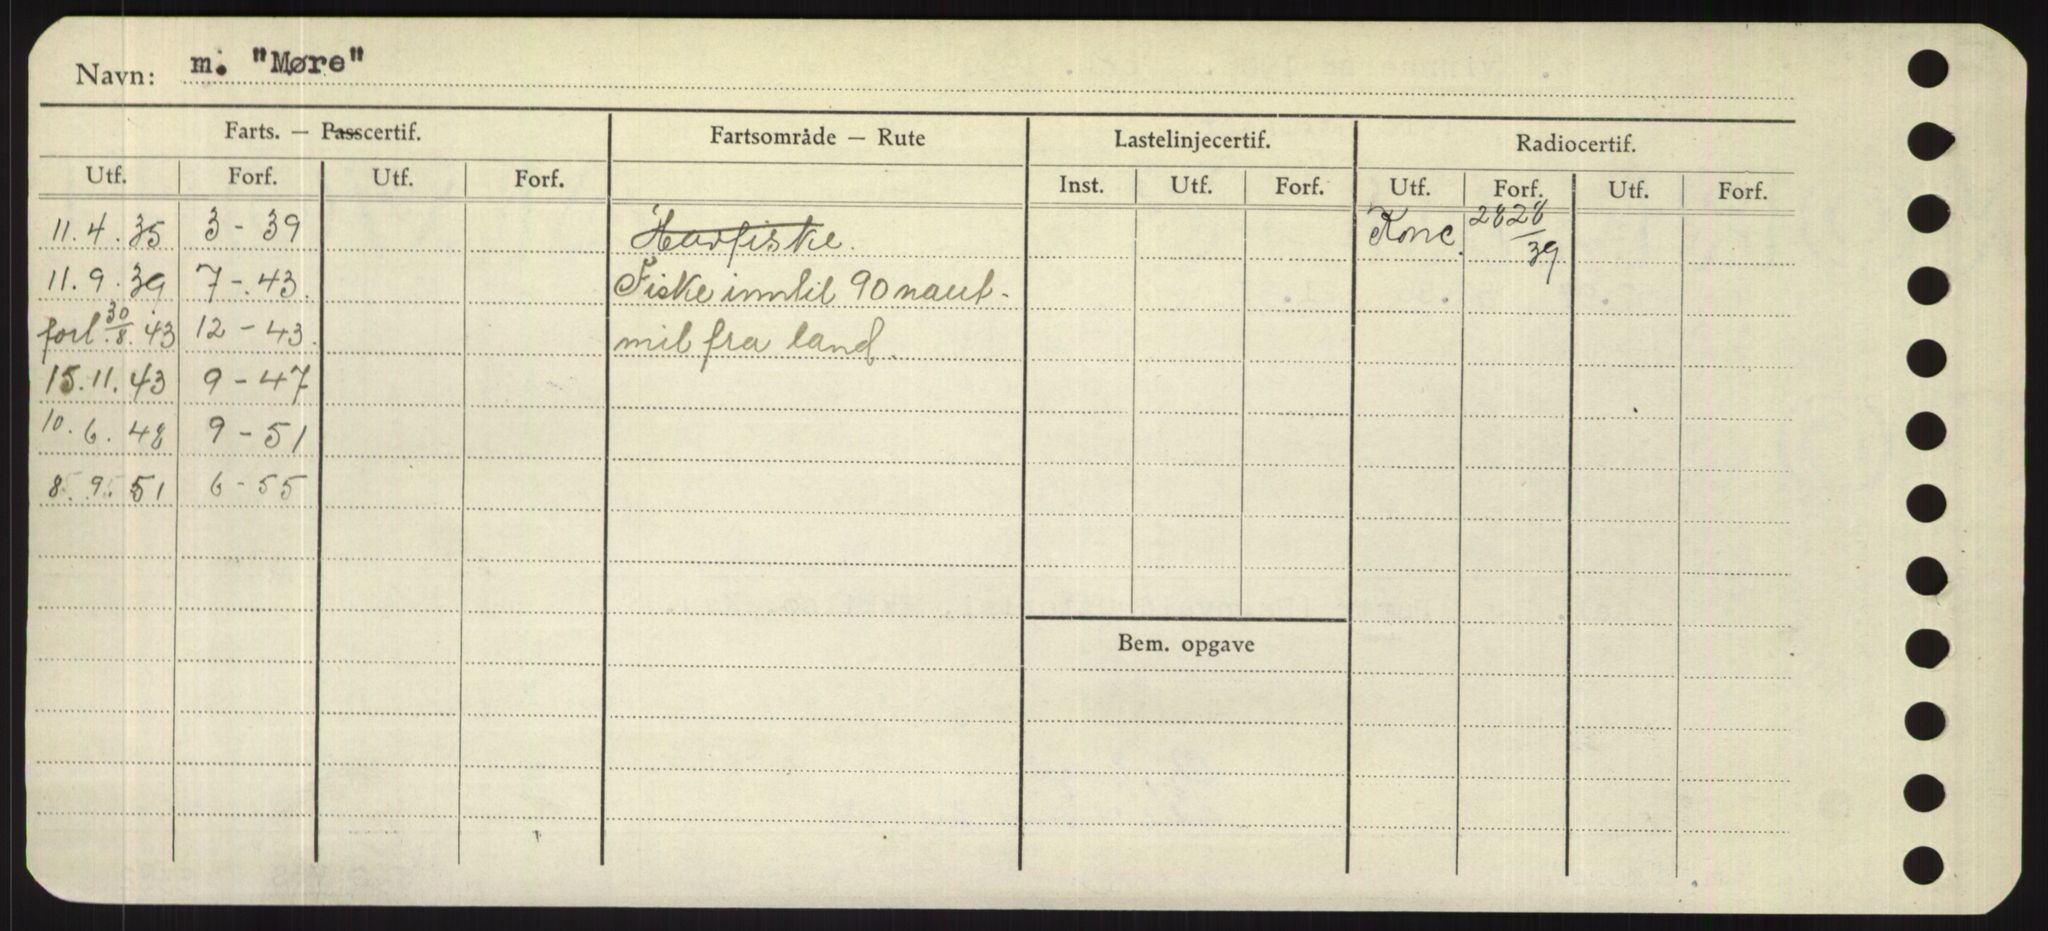 Navn: m. "Møre"
Farts. — Passcertif. Fartsområde — Rute Lastelinjecertif. Radiocertif.
Utf. Forf. Utf. Forf. Inst. Utf. Forf. Utf. Forf. Utf. Forf.
11.4.35 3-39 Havfiske. Konc. 2828/39
11.9.39 7-43. Fiske inntil 90 naut.
forl. 30/8.43 12-43. mil fra land.
15.11.43 9-47
10.6.48 9-51
8.9.51 6-55
Bem. opgave